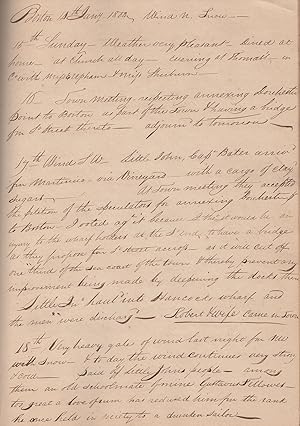 Boston 14th Jany 1804, Wind N. Snow —
15th Sunday — Weather very pleasant — Dined at
home — at Church all day — evening at
16 — Town meeting respecting annexing Dorchester
Point to Boston as part of the Town & having a bridge
fm St street thereto — adjourn'd to tomorrow
17th Wind S W — Little John, Capt Baker arriv'd
fm Martinico — via Vineyard — with a cargo of clay'd
Sugars — At Town meeting they accepted
the petition of the Speculators for annexing Dorchester
to Boston — I voted agst it because I tho't it would be an
injury to the wharf holders at the So. end, to have a bridge
as they propose fm St street across — as it will cut off
one third of the sea coast of the town & thereby prevent any
improvement being made by deepening the docks there
Little Jn haul'd into Hancocks wharf and
the men were discharg'd — Robert & Wife came in Town
18th Very heavy gale of wind last night fm NE
with snow — & to day the wind continues very strong
& cold — Paid off Little Johns people — among
them an old schoolmate of mine Gustavus Fellowes
too great a love of rum has reduced him fm the rank
he once held in society to a drunken sailor